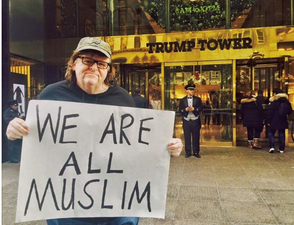 TRUMP TOWER
WE ARE
ALL
MUSLIM